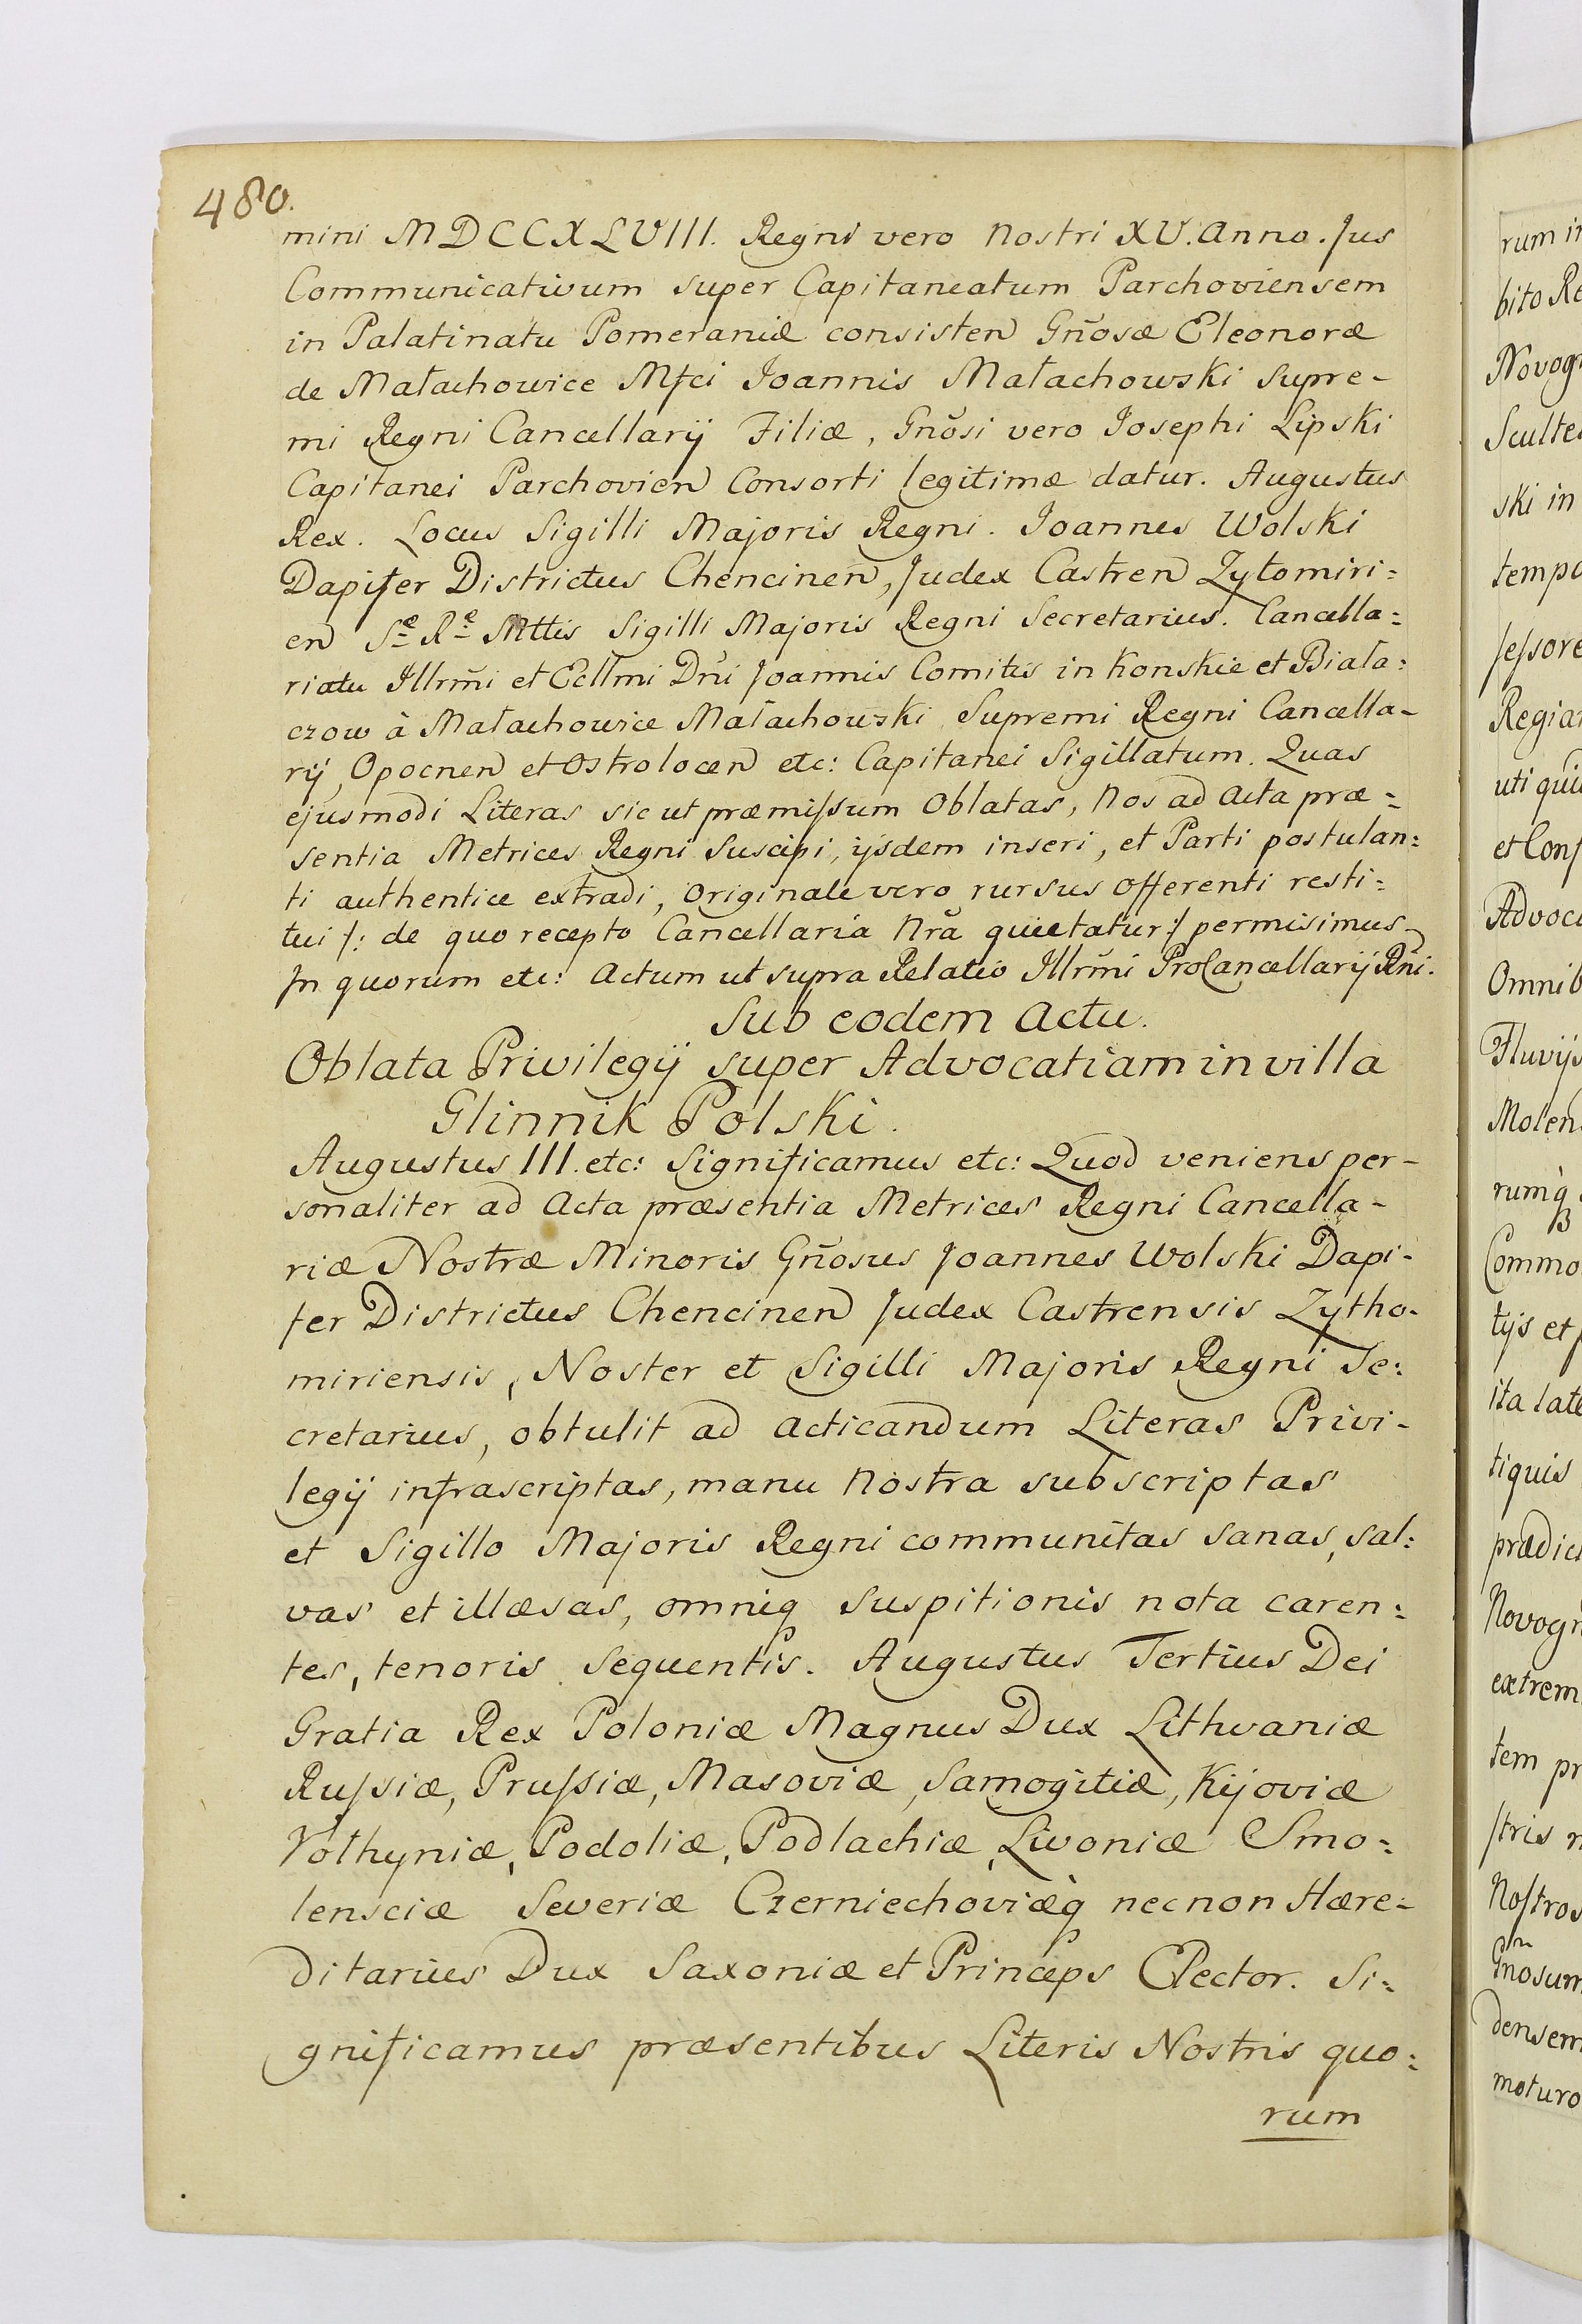 480.
mini MDCCXLVIII. Regni vero Nostri XV. Anno. Jus
Communicativum super Capitaneatum Parchoviensem
in Palatinatu Pomeraniæ consisten Gñosæ Eleonoræ
de Małachowice Mfci Joannis Małachowski Supre-
mi Regni Cancellarij Filiæ, Gñosi vero Josephi Lipski
Capitanei Parchovien Consorti legitimæ datur. Augustus
Rex. Locus Sigilli Majoris Regni. Joannes Wolski
Dapifer Districtus Chencinen, Judex Castren Zytomiri=
en Sᵉ Rᵉ Mttis Sigilli Majoris Regni Secretarius. Cancella=
riatu Illrm̃i et Ecllmi Dñi Joannis Comitis in Konskie et Biała=
czow à Małachowice Małachowski Supremi Regni Cancella-
rij, Opocnen et Ostrolocen etc: Capitanei Sigillatum. Quas
ejusmodi Literas sic ut præmissum Oblatas, Nos ad Acta præ=
sentia Metrices Regni Suscipi, ijsdem inseri, et Parti postulan=
ti authentice extradi, Originale vero rursus Offerenti resti=
tui /: de quo recepto Cancellaria Nrã quietatur :/ permisimus
In quorum etc: Actum ut supra Relatio Illrm̃i ProCancellarij Rñi.
Sub eodem Actu.
Oblata Privilegij super Advocatiam in villa
Glinnik Polski.
Augustus III. etc: Significamus etc: Quod veniens per-
sonaliter ad Acta præsentia Metrices Regni Cancella-
riæ Nostræ Minoris Gñosus Joannes Wolski Dapi-
fer Districtus Chencinen Judex Castrensis Zytho-
miriensis, Noster et Sigilli Majoris Regni Se=
cretarius, obtulit ad Acticandum Literas Privi-
legij infrascriptas, manu Nostra subscriptas
et Sigillo Majoris Regni communitas sanas, sal=
vas et illæsas, omniq suspitionis nota caren=
tes, tenoris sequentis. Augustus Tertius Dei
Gratia Rex Poloniæ Magnus Dux Lithvaniæ
Russiæ, Prussiæ, Masoviæ, Samogitiæ, Kijoviæ
Volhyniæ, Podoliæ, Podlachiæ, Livoniæ Smo=
lensciæ Severiæ Czerniechoviæq̀ necnon Hære-
ditarius Dux Saxoniæ et Princeps Elector. Si=
gnificamus præsentibus Literis Nostris quo=
rum
rum
bito
Novog
Sculte
ski in
tempo
sessore
Regia
uti qui
et Cons
Advoc
Omnib
Fluvijs
Molen
rumq̀
Commo
tijs et
ita late
tiquis
prædic
Novogr
extrem
tem pr
stris
Nostros
Gñosum
densem
moturo